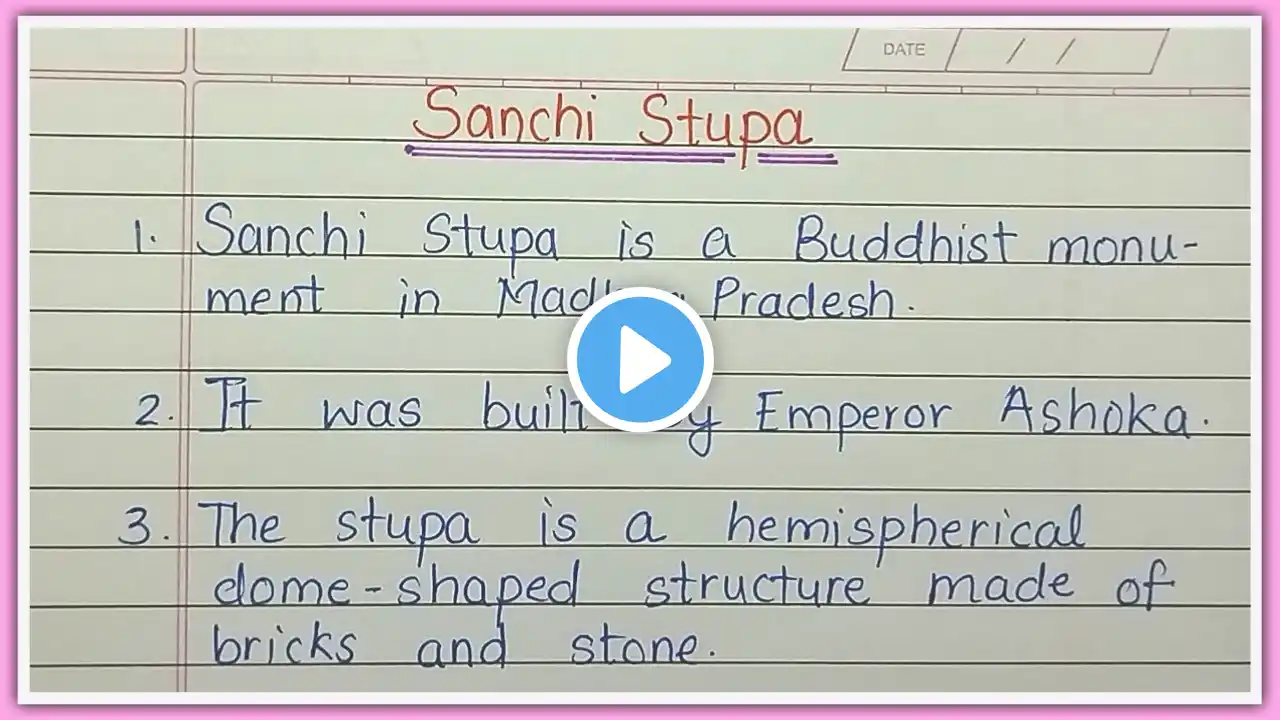 DATE / /
Sanchi Stupa
1. Sanchi Stupa is a Buddhist monu-
ment in Pradesh.
2. It was Emperor Ashoka.
3. The stupa is a hemispherical
dome-shaped structure made of
bricks and stone.